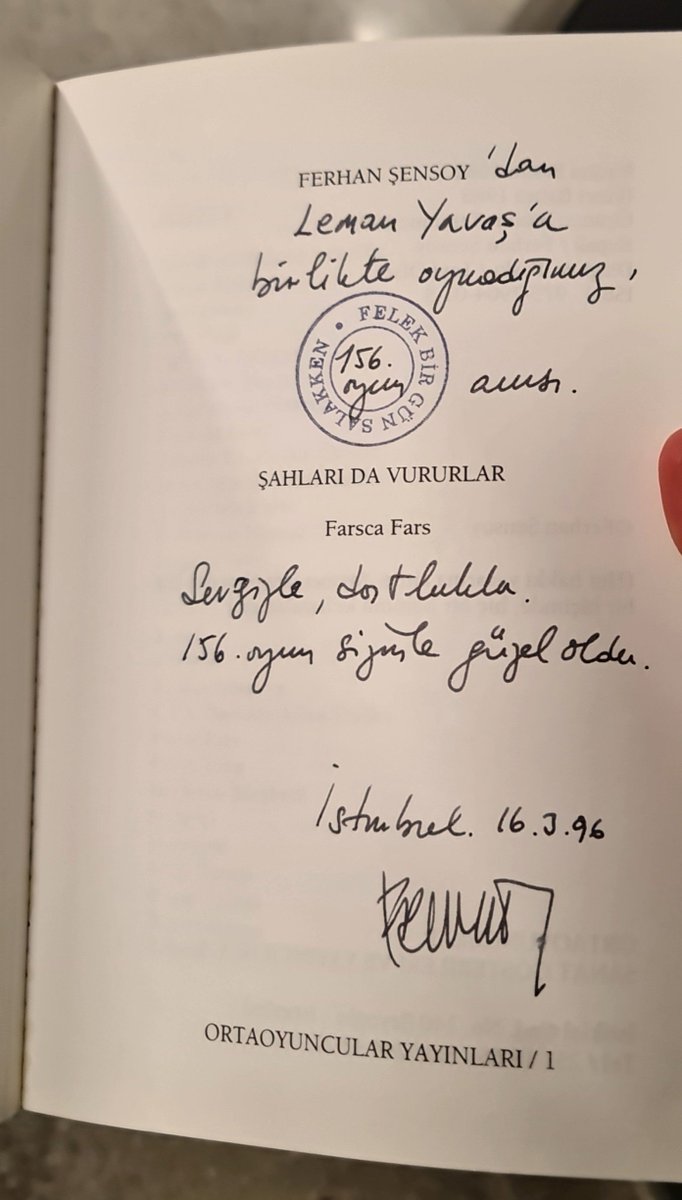 FERHAN ŞENSOY 'dan
Leman Yavaş'a
birlikte oynadığımız,
FELEK BİR GÜN SALAKKEN
156.
oyun
anısı.
ŞAHLARI DA VURURLAR
Farsca Fars
Sevgiyle, dostlukla.
156. oyun sizinle güzel oldu.
İstanbul. 16.3.96
ORTAOYUNCULAR YAYINLARI / 1